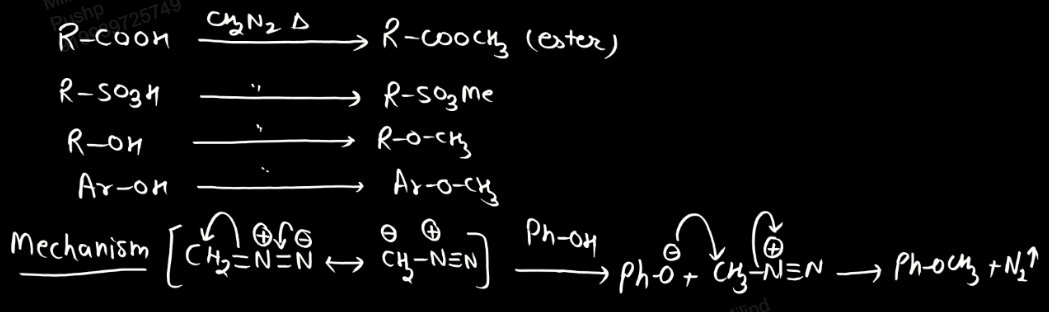 R-COOH CH2N2 Δ → R-COOCH3 (ester)
R-SO3H " → R-SO3Me
R-OH " → R-O-CH3
Ar-OH " → Ar-O-CH3
Mechanism [CH2=N⊕=N⊖ ↔ ⊖CH2-N⊕≡N] Ph-OH → Ph-O⊖ + CH3-N⊕≡N → Ph-OCH3 + N2↑